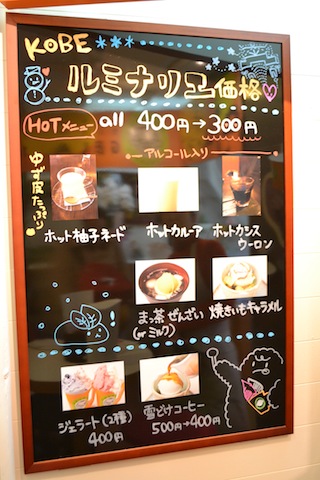 KOBE
ルミナリエ価格
HOTメニュー all 400円→300円
アルコール入り
ゆず皮たっぷり
ホット柚子ネード
ホットカルーア
ホットカシス
ウーロン
まっ茶ぜんざい
(or ミルク)
焼きいもキャラメル
ジェラート(2種)
400円
雪どけコーヒー
500円→400円